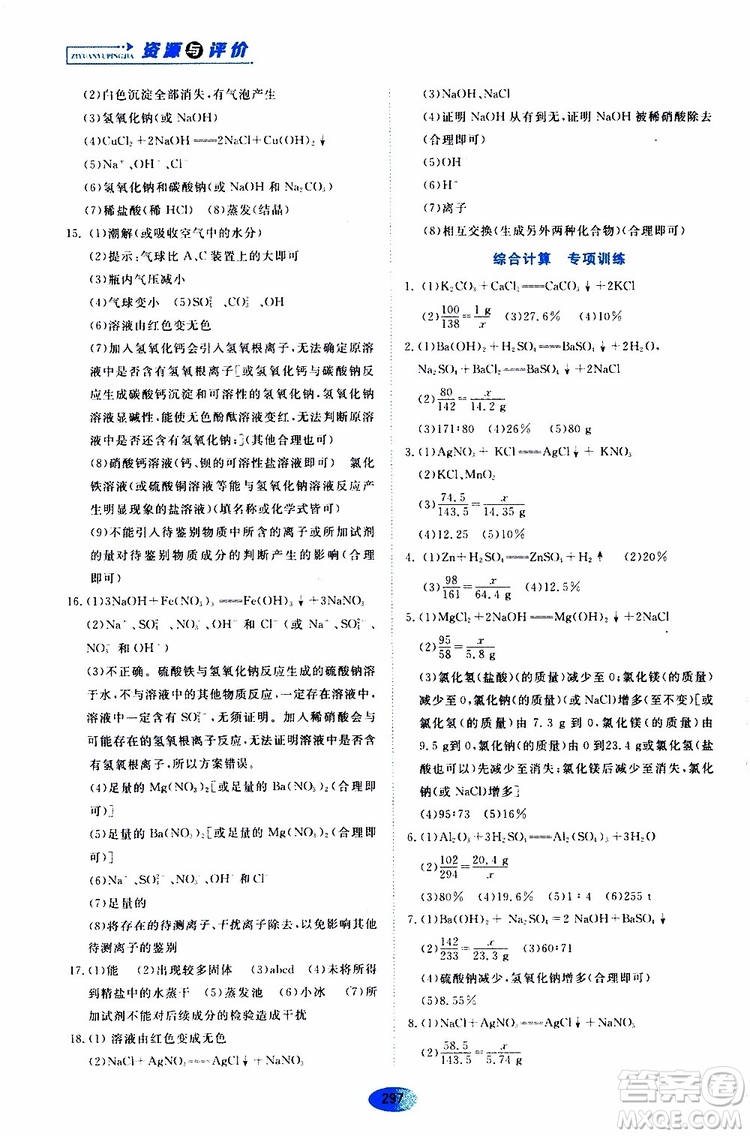 ZIYUANYUPINGJIA
资源与评价
(2)白色沉淀全部消失,有气泡产生
(3)氢氧化钠(或 NaOH)
(4)CuCl₂+2NaOH══2NaCl+Cu(OH)₂↓
(5)Na⁺、NO₃⁻
(6)氢氧化钠和碳酸钠(NaOH 和 Na₂CO₃)
(7)稀盐酸(稀 HCl) (8)蒸发(结晶)
15. (1)潮解(或吸收空气中的水分)
(2)提示:气球比 A、C 装置上的大即可
(3)瓶内气压减小
(4)气球变小 (5)SO₄²⁻、CO₃²⁻
(6)溶液由红色变无色
(7)加入氢氧化钙会引入氢氧根离子,无法确定原溶
液中是否含有氢氧根离子[或氢氧化钙与碳酸钠反
应生成碳酸钙沉淀和可溶性的氢氧化钠,氢氧化钠
溶液显碱性,能使无色酚酞溶液变红,无法判断原溶
液中是否还含有氢氧化钠;](其他合理也可)
(8)硝酸钙溶液(钙、钡的可溶性盐溶液) 氯化
铁溶液(或硫酸铜溶液等能与氢氧化钠反应且产
生明显现象的盐溶液)(填名称或化学式皆可)
(9)不能引入待鉴别物质中含有的离子或所加试剂
的量对待鉴别物质成分的判断产生的影响(合理
即可)
16. (1)3NaOH+Fe(NO₃)₃══Fe(OH)₃↓+3NaNO₃
(2)Na⁺、SO₄²⁻、NO₃⁻、OH⁻ Na⁺、SO₄²⁻、
NO₃⁻、OH⁻
(3)不正确。硫酸铁与氢氧化钠反应生成硫酸钠溶
于水,不与溶液中原有的物质发生反应,在溶液中,
一定含有 SO₄²⁻,无须证明。加入稀硝酸会与
可能存在的氢氧根离子反应,无法证明溶液中存在
氢氧根离子,所以方案错误。
(4)足量的 Mg(NO₃)₂[或足量的 Ba(NO₃)₂(合理即
可)]
(5)足量的 Ba(NO₃)₂[或足量的 Mg(NO₃)₂(合理即
可)]
(6)Na⁺、SO₄²⁻、NO₃⁻、OH⁻和 Cl⁻
(7)足量的
(8)将存在的待测离子、干扰离子除去,以免影响其他
待测离子的鉴别
17. (1)能 (2)出现较多固体 (3)abcd (4)未将所得
到精盐中的水蒸干 (5)蒸发池 (6)小冰 (7)所
加试剂不能对后续成分的检验造成干扰
18. (1) 溶液由红色变成无色
(2)NaCl+AgNO₃══AgCl↓+NaNO₃
(3)NaOH、NaCl
(4)证明 NaOH 从有到无,证明 NaOH 被稀硝酸除去
(合理即可)
(5)OH⁻
(6)H⁺
(7)离子
(8)相互交换(生成另外两种化合物)(合理即可)
综合计算 专项训练
1. (1)K₂CO₃+CaCl₂══CaCO₃↓+2KCl
(2)100/138=1 g/x (3)27.6% (4)10%
2. (1)Ba(OH)₂+H₂SO₄══BaSO₄↓+2H₂O、
Na₂SO₄+BaCl₂══BaSO₄↓+2NaCl
(2)80/142=x/14.2 g
(3)171:80 (4)26% (5)80 g
3. (1)AgNO₃+KCl══AgCl↓+KNO₃
(2)KCl、MnO₂
(3)74.5/143.5=x/14.35 g
(4)12.25 (5)10%
4. (1)Zn+H₂SO₄══ZnSO₄+H₂↑ (2)20%
(3)98/161=x/64.4 g (4)12.5%
5. (1)MgCl₂+2NaOH══Mg(OH)₂↓+2NaCl
(2)95/58=x/5.8 g
(3)氯化氢(盐酸)的质量减少至 0;氯化镁(的质量)
减少至 0,氯化钠(的质量)增多(至不变)[或
氯化氢(的质量)由 7.3 g 到 0,氯化镁(的质量)由
9.5 g到 0,氯化钠(的质量)由 0到 23.4 g或氯化氢(盐
酸也可以)先减少至消失;氯化镁后减少至消失;氯化钠
(NaCl)增多]
(4)95:73 (5)16%
6. (1)Al₂O₃+3H₂SO₄══Al₂(SO₄)₃+3H₂O
(2)102/294=20.4 g/x
(3)80% (4)19.6% (5)1:4 (6)255 t
7. (1)Ba(OH)₂+Na₂SO₄══2NaOH+BaSO₄↓
(2)142/233=x/23.3 g (3)60:71
(4)硫酸钠减少,氢氧化钠增多(合理即可)
(5)8.55%
8. (1)NaCl+AgNO₃══AgCl↓+NaNO₃
(2)58.5/143.5=x/5.74 g
297
答案圈
MXQE.COM